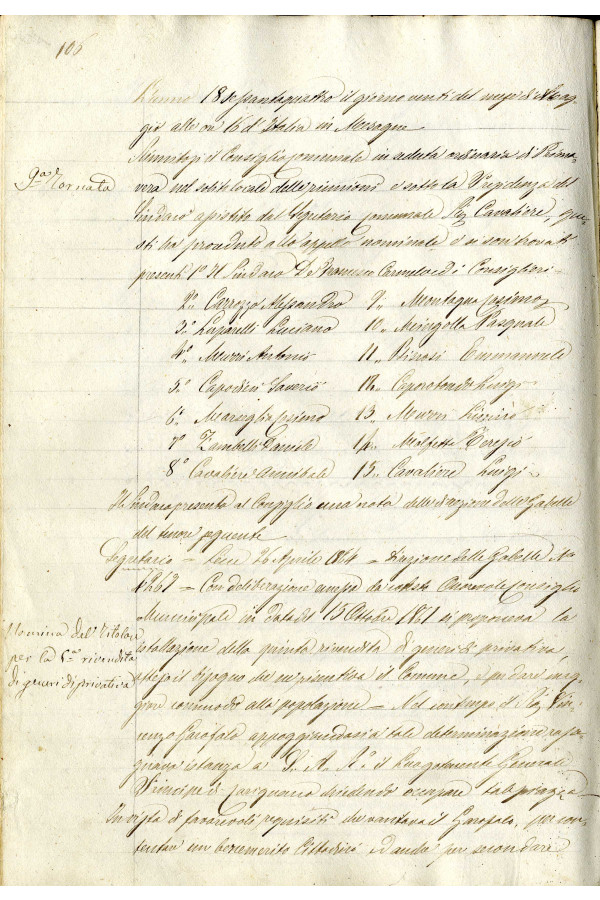 106
L'anno 18 sessantaquattro il giorno venti del mese di Mag-
gio alle ore 16 d'Italia in Mesagne
Riunitosi il Consiglio comunale in seduta ordinaria di Prima-
9a Tornata
vera nel solito locale delle riunioni e sotto la Presidenza del
Sindaco assistito dal Segretario comunale Sig. Cavaliere, que-
sti ha proceduto allo appello nominale, e si son trovati
presenti 1° Il Sindaco De Francesco Carmelo ed i Consiglieri
2° Carrozzo Alessandro 9,, Montagna Cosimo
3° Luparelli Luciano 10,, Mingolla Pasquale
4° Murri Antonio 11,, Emmanuele
5° Capodieci Saverio 12,, Caporotondo Luigi
6° Marsiglia Cosimo 13,, Murri
7° Zambelli Daniele 14,, Molfetta Teresio
8° Cavaliere Annibale 15,, Cavaliere Luigi
Il Sindaco presenta al Consiglio una nota della direzione delle Gabelle
del tenore seguente
Segretario = Lecce 26 Aprile 1864 = Direzione delle Gabelle No
4267 = Con deliberazione emessa da cotesto Onorevole Consiglio
Municipale in data del 15 Ottobre 1861 si proponeva la
Nomina del Titolare
stallazione della quinta rivendita di generi di privativa,
per la 5a rivendita
atteso il bisogno che ne risentiva il Comune, e per dare mag-
di generi di privativa
giore commodo alla popolazione = Nel contempo il Sig. Vin-
cenzo Garofalo appoggiandosi a tale determinazione rasse-
gnava istanza a S. A. R. il Luogotenente Generale
Principe di Carignano chiedendo occupare tale piazza
In vista di favorevoli requisiti che vantava il Garofalo, per
un benemerito Cittadino, ed anche per secondare